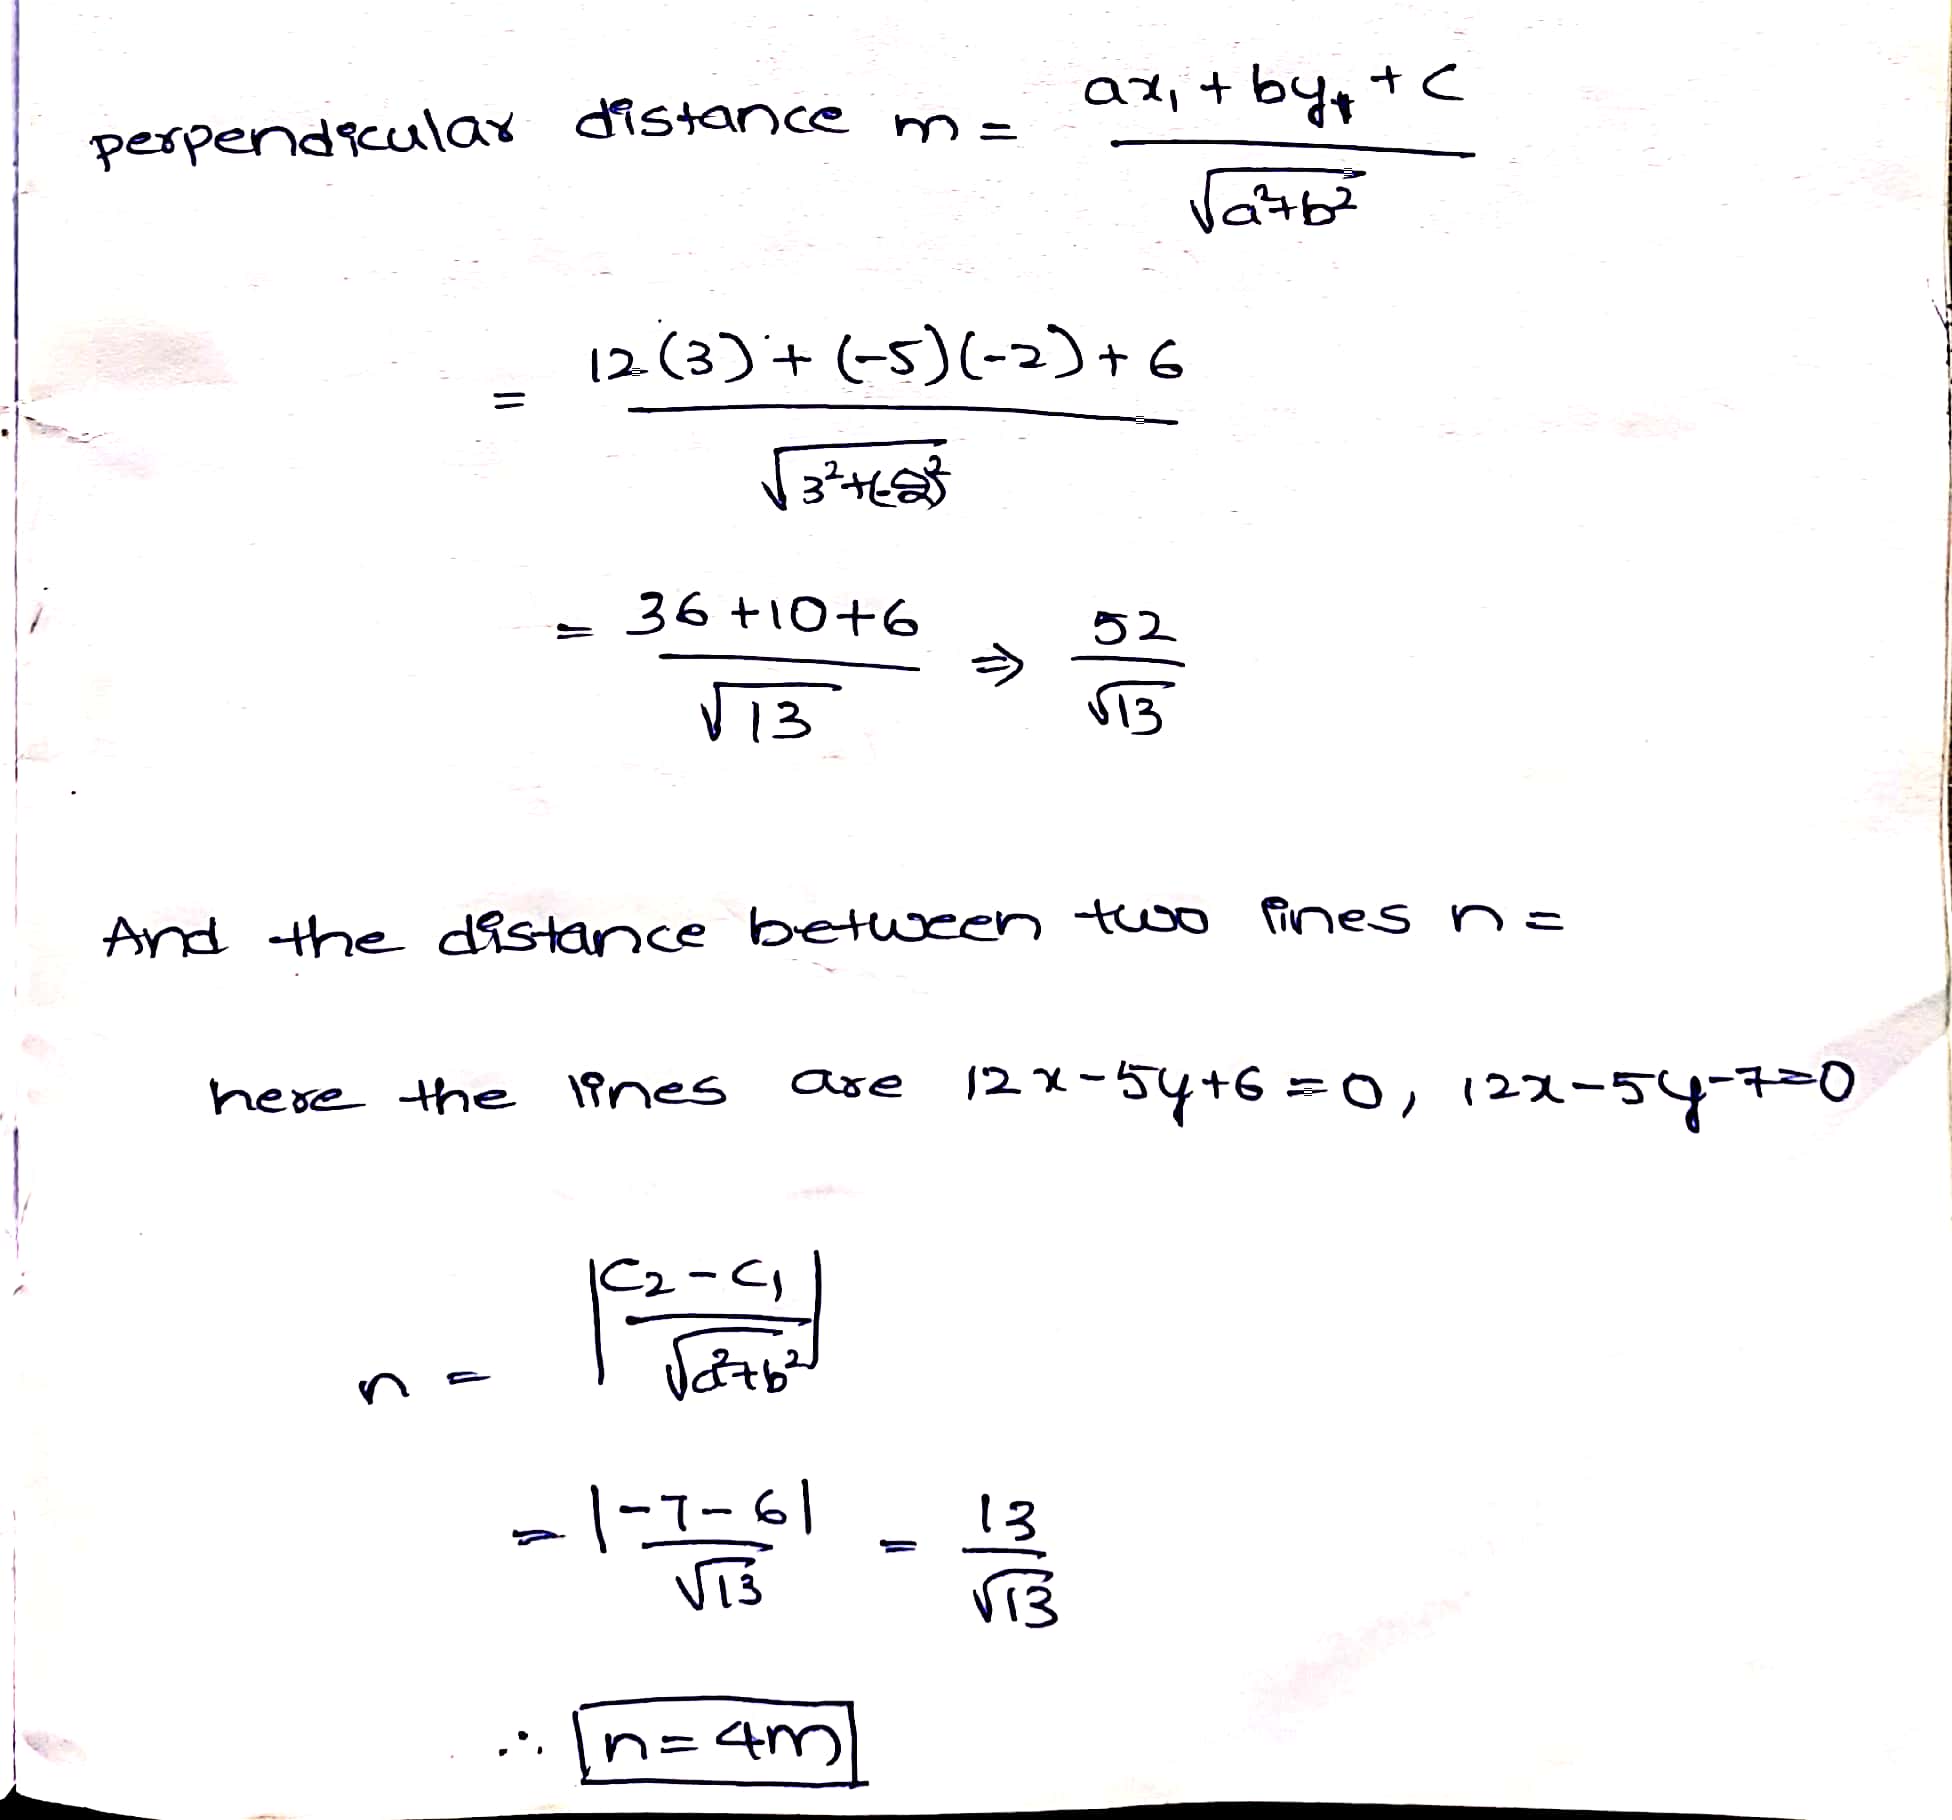 perpendicular distance m = ax₁ + by₁ + c / √a²+b²
= 12(3) + (-5)(-2) + 6 / √3²+(-2)²
= 36+10+6 / √13 ⇒ 52 / √13
And the distance between two lines n =
here the lines are 12x-5y+6=0, 12x-5y-7=0
n = |c₂-c₁ / √a²+b²|
= |-7-6| / √13 = 13 / √13
∴ n=4m